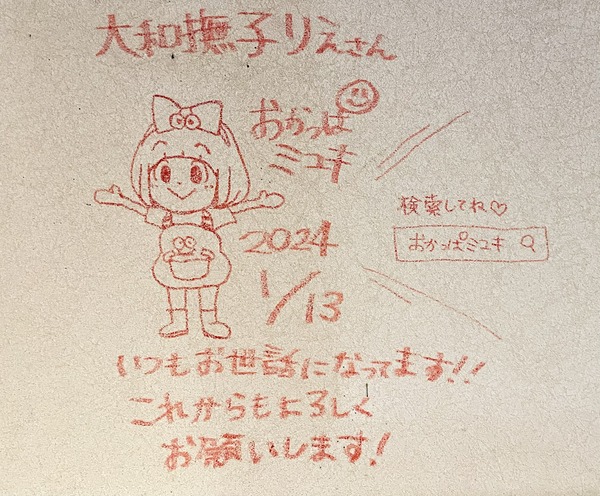 大和撫子りえさん
おかっぱ
ミユキ
2024
1/13
検索してね♡
おかっぱミユキ
いつもお世話になってます!!
これからもよろしく
お願いします!